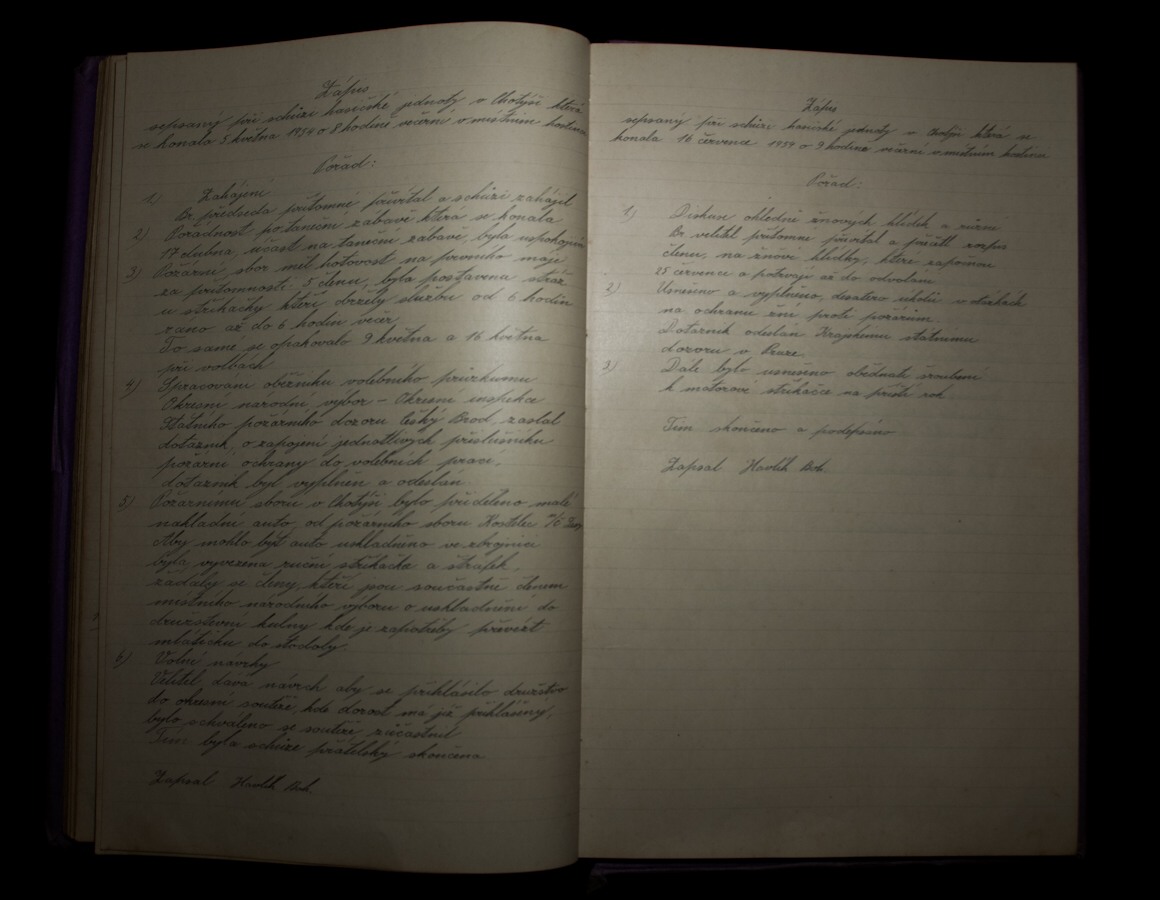 Zápis
sepsaný při schůzi hasičské jednoty v Chotýši která
se konala 5 května 1954 o 8 hodině večerní v místním hostinci
Pořad:
1) Zahájení
Br. předseda přítomné přivítal a schůzi zahájil
2) Pořádnost po taneční zábavě která se konala
17 dubna, účast na taneční zábavě, byla uspokojivá
3) Požární sbor měl hotovost na prvního máje
za přítomnosti: 5 členů, byla postavena stráž
u stříkačky kteří drželi službu od 6 hodin
rano až do 6 hodin večer
To samé se opakovalo 9 května a 16 května
při volbách
4) Spracovani oběžníku volebního průzkumu
Okresní národní výbor – Okresní inspekce
Státního požárního dozoru Český Brod, zaslal
dotazník, o zapojení jednotlivých příslušníku
požární ochrany do volebních prací,
dotazník byl vyplněn a odeslán.
5) Požárnímu sboru v Chotýši bylo přiděleno malé
nakladní auto, od požárního sboru Kostelec n/Č
Aby mohlo být auto uskladněno ve zbrojnici
byla vyvezena ruční stříkačka a
žádaly se členy, kteří jsou součastně členem
místního národního výboru o uskladnění do
družstevní kulny kde je zapotřeby převézt
mlátičku do stodoly.
6) Volné návrhy
Velitel dává návrh aby se přihlásilo družstvo
do okresní soutěže, kde dorost má již přihlášený,
bylo schváleno se soutěže zúčastnit
Tím byla schůze přátelsky skončena
Zapsal Havlík Boh.
Zápis
sepsany při schůzi hasičské jednoty v Chotýši která se
konala 16 července 1954 o 9 hodine večerní v místním hostinci
Pořad:
1) Diskuse ohledně žňových hlídek a různé
Br velitel přítomné přivítal a přečítl rozpis
členu, na žňové hlídky, které započnou
25 července a potrvají až do odvolání
2) Usnešeno a vyplněno, desatero úkolů v otázkách
na ochranu žní proti požárům.
Dotazník odeslán Krajskému státnímu
dozoru v Praze.
3) Dále bylo usnešeno obědnati šroubení
k motorové stříkačce na příští rok
Tím skončeno a podepsáno
Zapsal Havlík Boh.